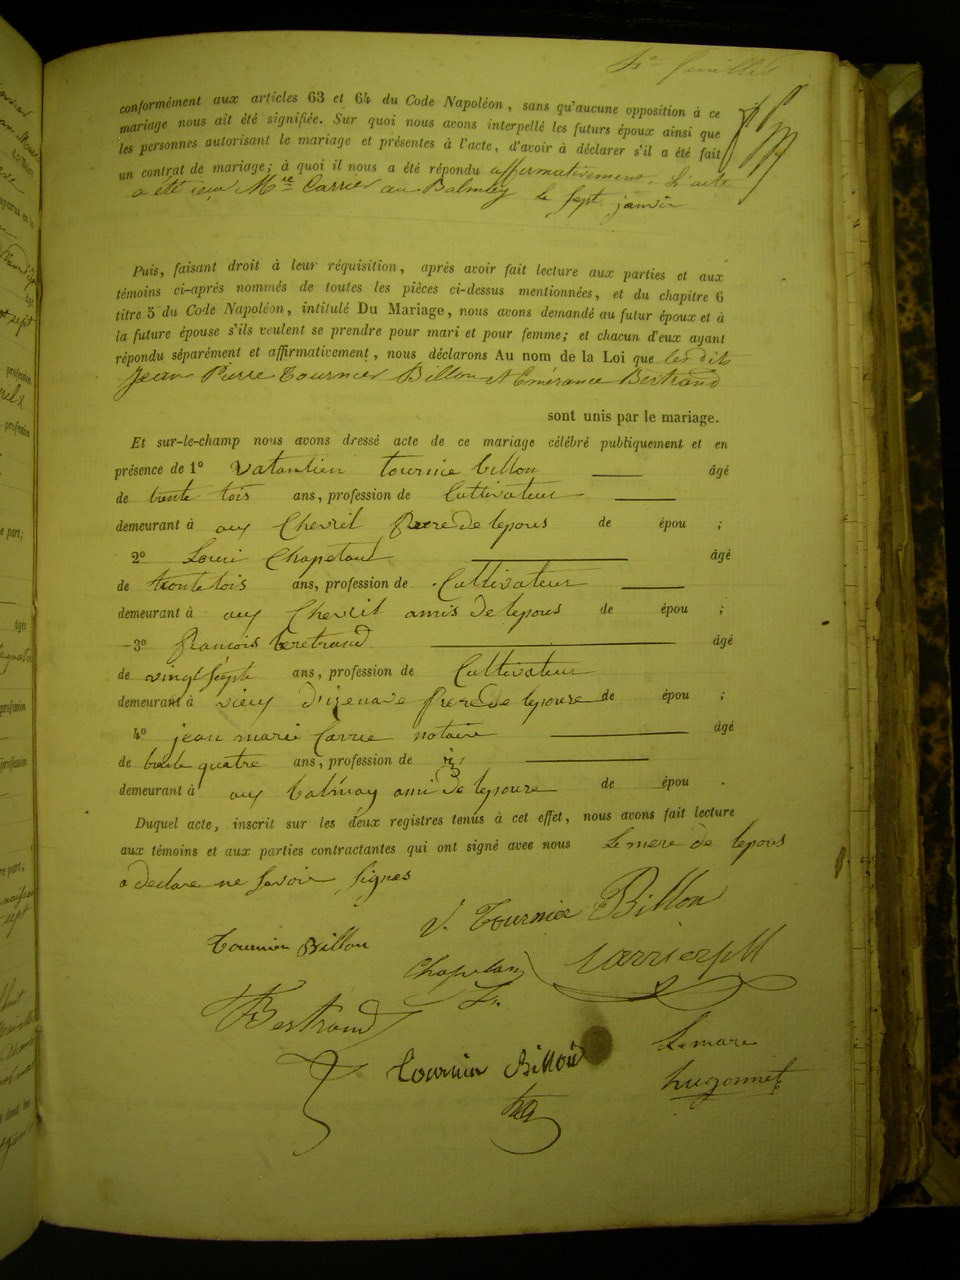 feuillet
conformément aux articles 63 et 64 du Code Napoléon, sans qu'aucune opposition à ce
mariage nous ait été signifiée. Sur quoi nous avons interpellé les futurs époux ainsi que
les personnes autorisant le mariage et présentes à l'acte, d'avoir à déclarer s'il a été fait
un contrat de mariage; à quoi il nous a été répondu affirmativement. L'acte
a été reçu Me Carrier au Balmay le sept janvier
Puis, faisant droit à leur réquisition, après avoir fait lecture aux parties et aux
témoins ci-après nommés de toutes les pièces ci-dessus mentionnées, et du chapitre 6
titre 5 du Code Napoléon, intitulé Du Mariage, nous avons demandé au futur époux et à
la future épouse s'ils veulent se prendre pour mari et pour femme; et chacun d'eux ayant
répondu séparément et affirmativement, nous déclarons Au nom de la Loi que les dits
Jean Pierre Tournier Billon et Emérance Bertrand
sont unis par le mariage.
Et sur-le-champ nous avons dressé acte de ce mariage célébré publiquement et en
présence de 1° Vatantien tournie billon âgé
de trente tois ans, profession de Cultivateur
demeurant à aux Chevril frere de lepous de épou ;
2° Loui Chapetant âgé
de trente tois ans, profession de Cultivateur
demeurant à aux Chevril amis de lepous de épou ;
3° francois bertrand âgé
de vingt sépte ans, profession de Cultivateur
demeurant à vieux d'izenave frere de lepouse de épou ;
4° jean marie Carrie notaire âgé
de trente quatre ans, profession de
demeurant à aux balmay ami de lepouse de épou .
Duquel acte, inscrit sur les deux registres tenus à cet effet, nous avons fait lecture
aux témoins et aux parties contractantes qui ont signé avec nous Le mere de lepous
a declare ne savoir signes
V. Tournier Billon
Tournier Billon
Chapelan
Carrier JM
Bertrand
Tournier Billon
Le maire
hugonnet